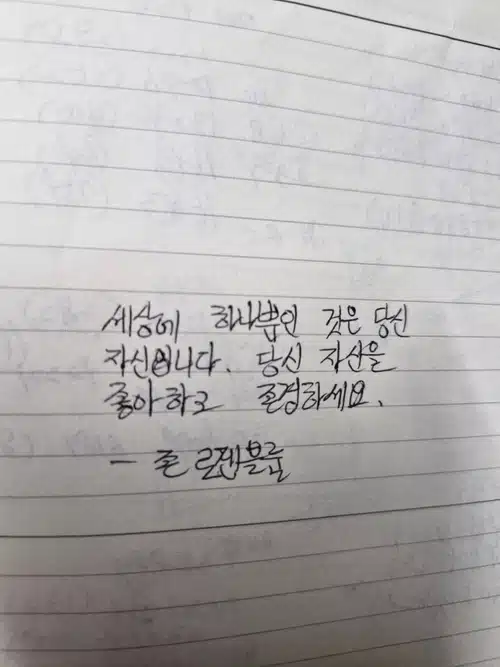 세상에 하나뿐인 것은 당신
자신입니다. 당신 자신을
좋아하고 존경하세요.
- 존 로젠블룸